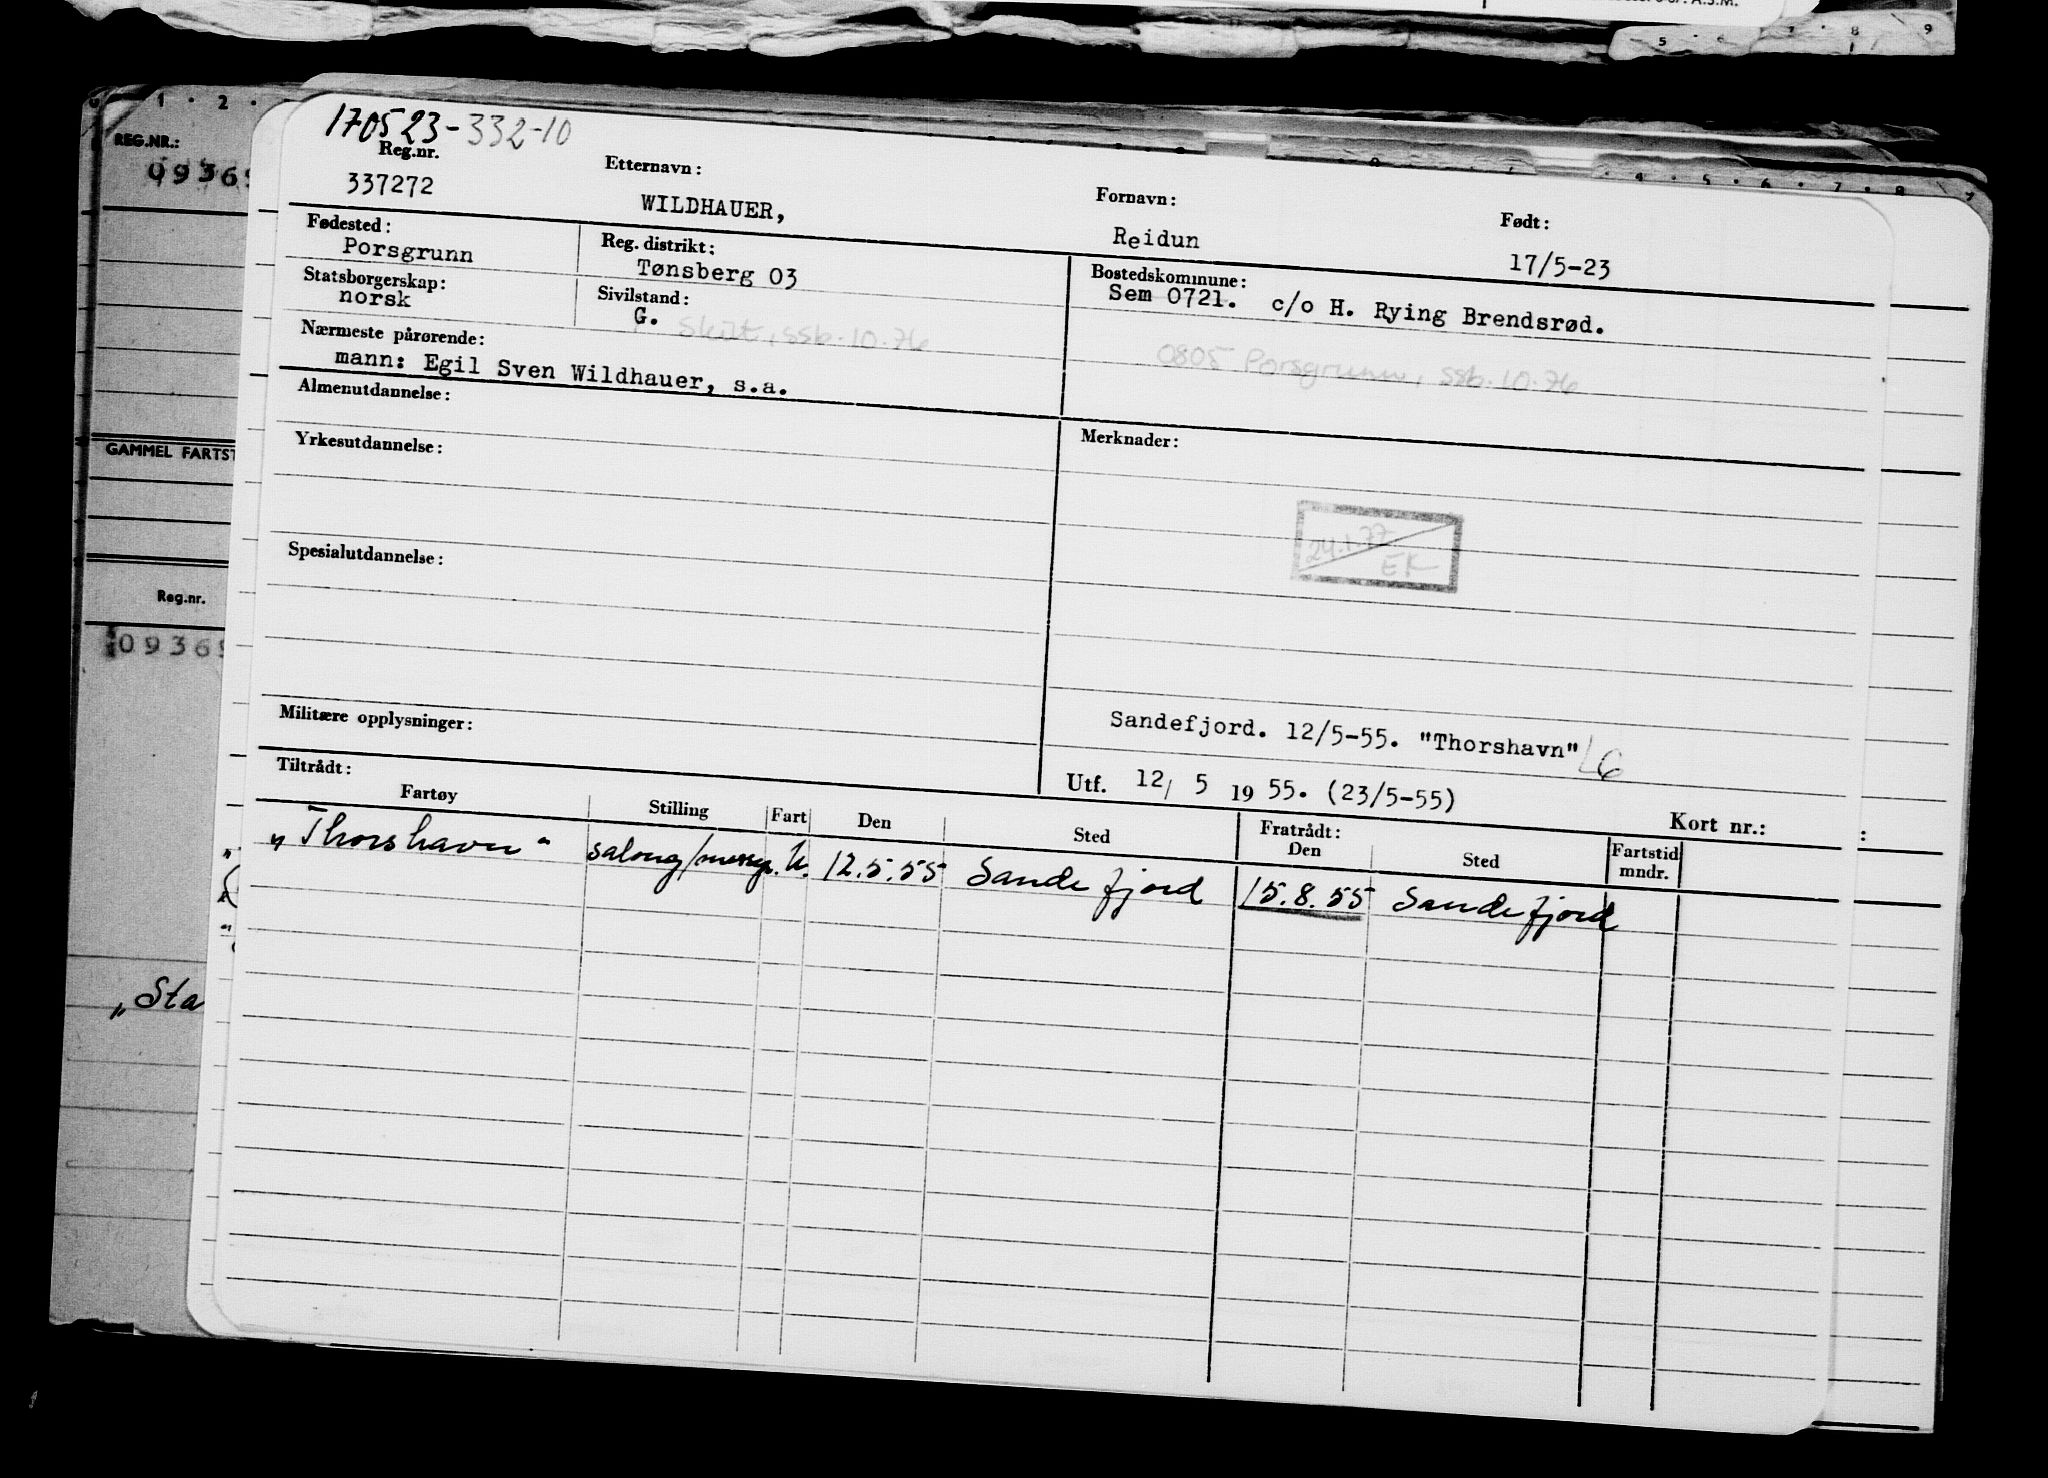 5 6 7 8 9
1 2
REG.NR.:
0936
GAMMEL FARTST
Reg.nr.
0936
„Sta
4 5 6 7 8
170523-332-10
Reg.nr. Etternavn: Fornavn: Født:
337272 WILDHAUER, Reidun 17/5-23
Fødested: Reg. distrikt: Bostedskommune:
Porsgrunn Tønsberg 03 Sem 0721. c/o H. Rying Brendsrød.
Statsborgerskap: Sivilstand:
norsk G. Skilt, ssb. 10.76
0805 Porsgrunn, ssb. 10.76
Nærmeste pårørende:
mann: Egil Sven Wildhauer, s.a.
Almenutdannelse:
Yrkesutdannelse: Merknader:
24.1.77
EK
Spesialutdannelse:
Militære opplysninger:
Sandefjord. 12/5-55. "Thorshavn"
Utf. 12/ 5 19 55. (23/5-55)
Tiltrådt: Kort nr.: :
Fartøy Stilling Fart Den Sted Fratrådt: Den Sted Fartstid mndr.
„Thorshavn" salong/messp. U. 12.5.55 Sandefjord 15.8.55 Sandefjord